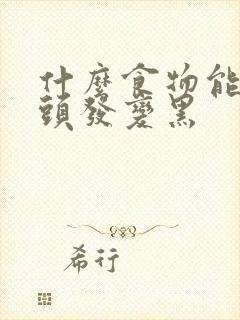 什麼食物能
頭發變黑
希行